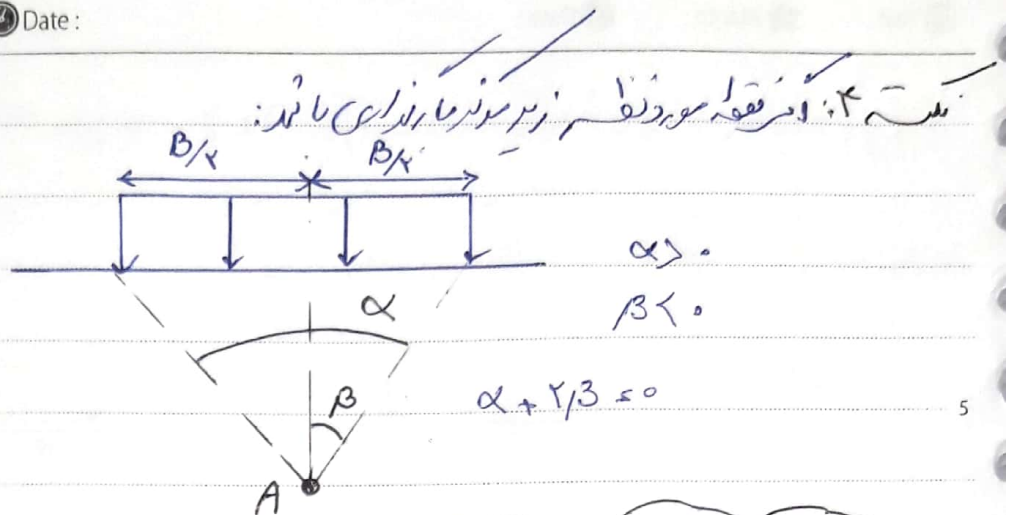 Date :
نکته ۳: اگر نقطه مورد نظر زیر مرکز بارگذاری باشد:
B/۲ B/۲
α > ۰
α
β < ۰
β
α + ۲β = ۰
5
A